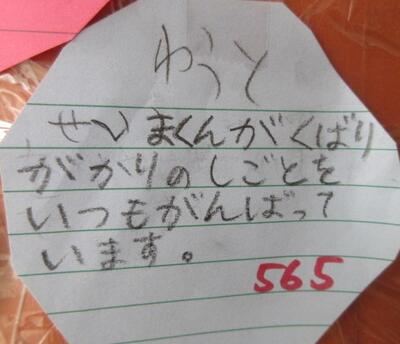 ゆうと
せいまくんがくばり
がかりのしごとを
いつもがんばって
います。
565